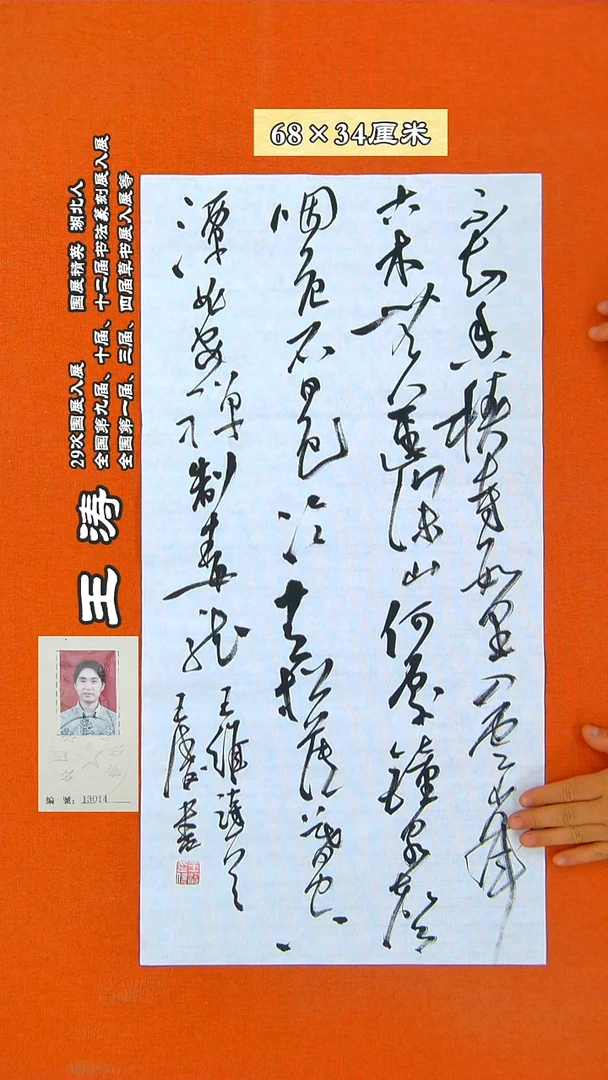 68×34厘米
不知香積寺數里入雲峰
古木無人逕深山何處鐘泉聲
咽危石日色冷青松薄暮空
潭曲安禪制毒龍
王維詩
王濤書
王涛
29次国展入展 国展精英 湖北人
全国第九届、十届、十二届书法篆刻展入展
全国第一届、三届、四届草书展入展等
13014